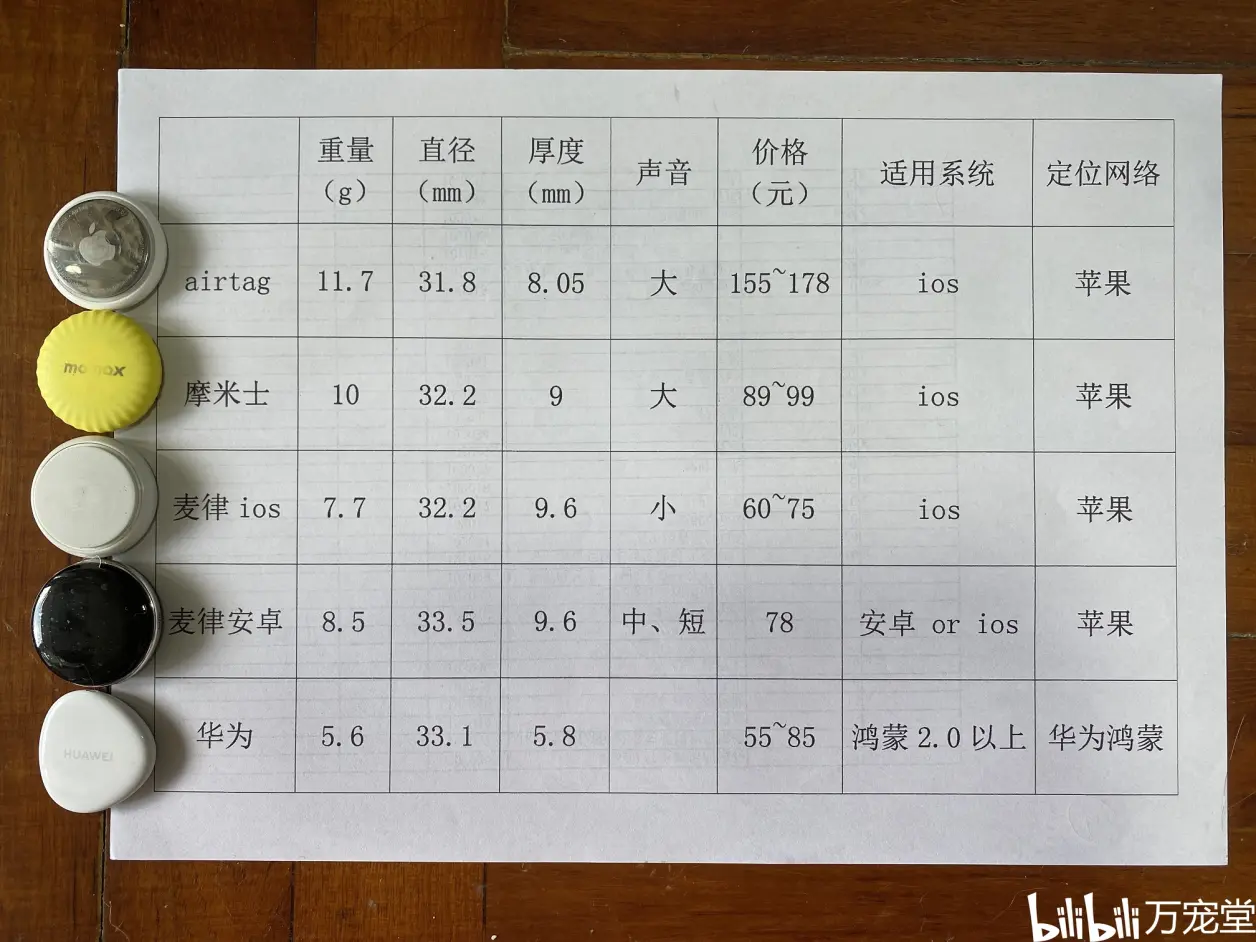 重量 直径 厚度 声音 价格 适用系统 定位网络
(g) (mm) (mm) (元)
airtag 11.7 31.8 8.05 大 155~178 ios 苹果
momax
摩米士 10 32.2 9 大 89~99 ios 苹果
麦律 ios 7.7 32.2 9.6 小 60~75 ios 苹果
麦律安卓 8.5 33.5 9.6 中、短 78 安卓 or ios 苹果
HUAWEI
华为 5.6 33.1 5.8 55~85 鸿蒙 2.0 以上 华为鸿蒙
bilibili 万宠堂